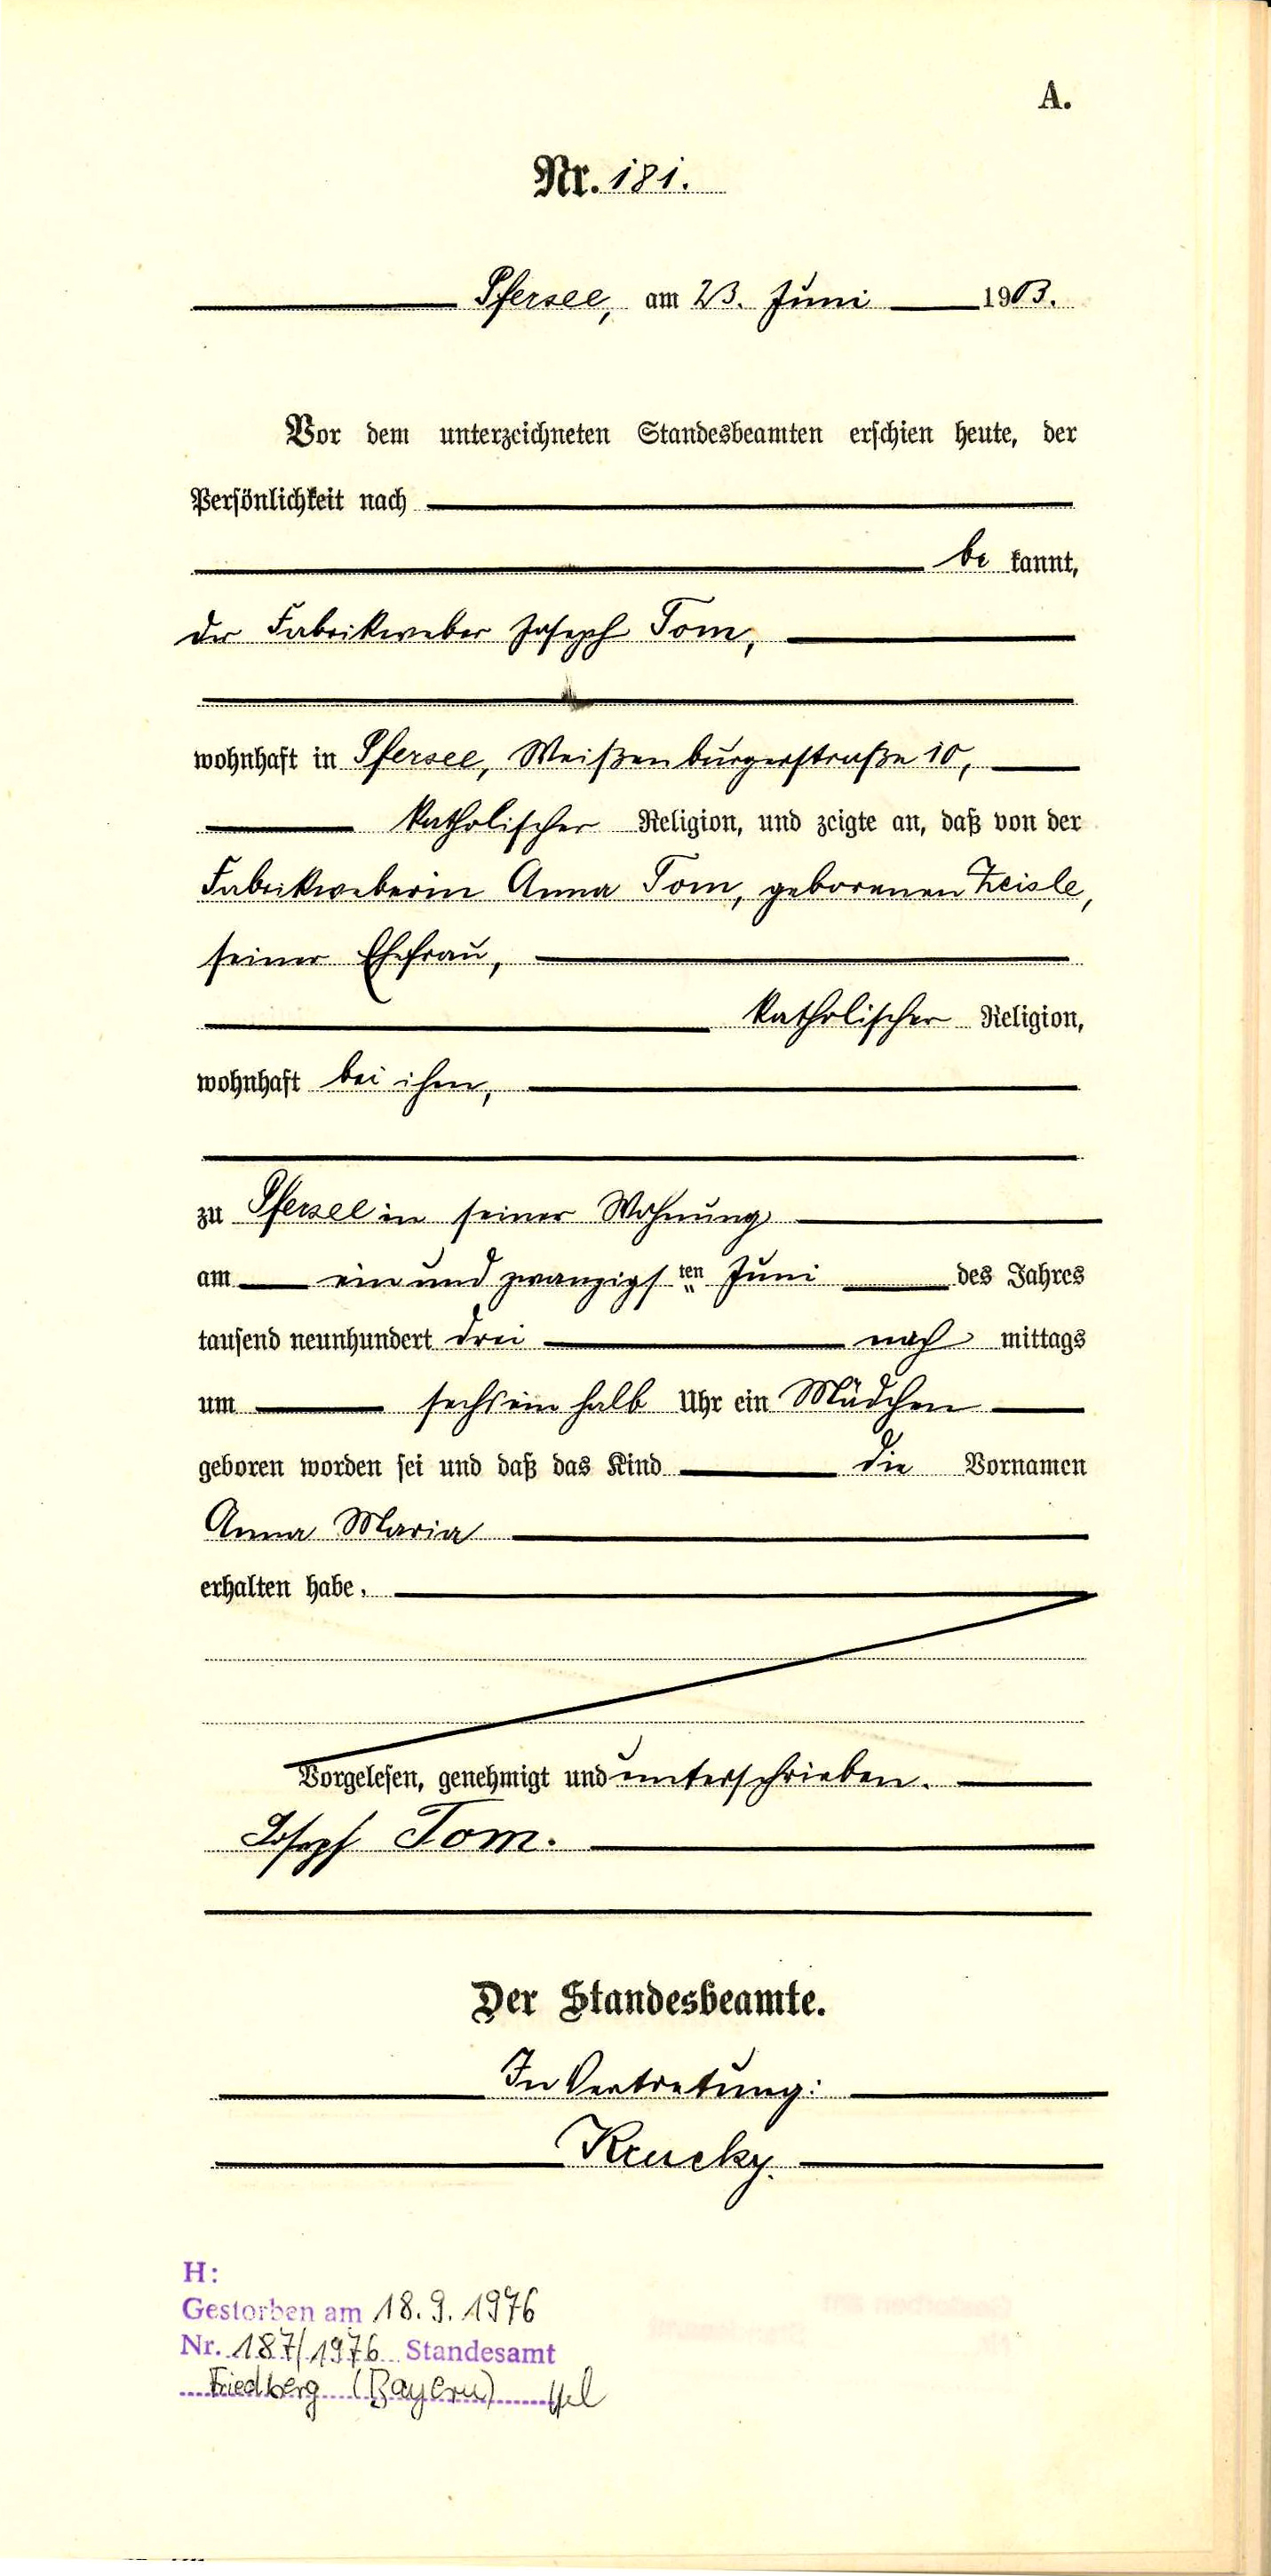 A.
Nr. 181.
Pfersee, am 23. Juni 1903.
Vor dem unterzeichneten Standesbeamten erschien heute, der
Persönlichkeit nach
be kannt,
der Fabrikweber Joseph Tom,
wohnhaft in Pfersee, Weißenburgerstraße 10,
katholischer Religion, und zeigte an, daß von der
Fabrikweberin Anna Tom, geborenen Zeisle,
seiner Ehefrau,
katholischer Religion,
wohnhaft bei ihm,
zu Pfersee in seiner Wohnung
am ein und zwanzigsten Juni des Jahres
tausend neunhundert drei nach mittags
um sechs ein halb Uhr ein Mädchen
geboren worden sei und daß das Kind die Vornamen
Anna Maria
erhalten habe.
Vorgelesen, genehmigt und unterschrieben.
Joseph Tom.
Der Standesbeamte.
In Vertretung:
Krucky.
H:
Gestorben am 18.9.1976
Nr. 187/1976 Standesamt
Friedberg (Bayern)